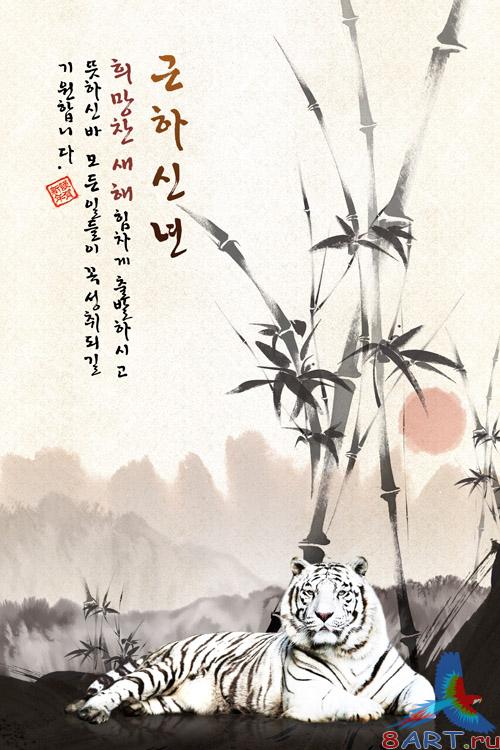 근하신년
희망찬 새해 힘차게 출발하시고
뜻하신바 모든일들이 꼭 성취되길
기원합니다.
8ART.ru